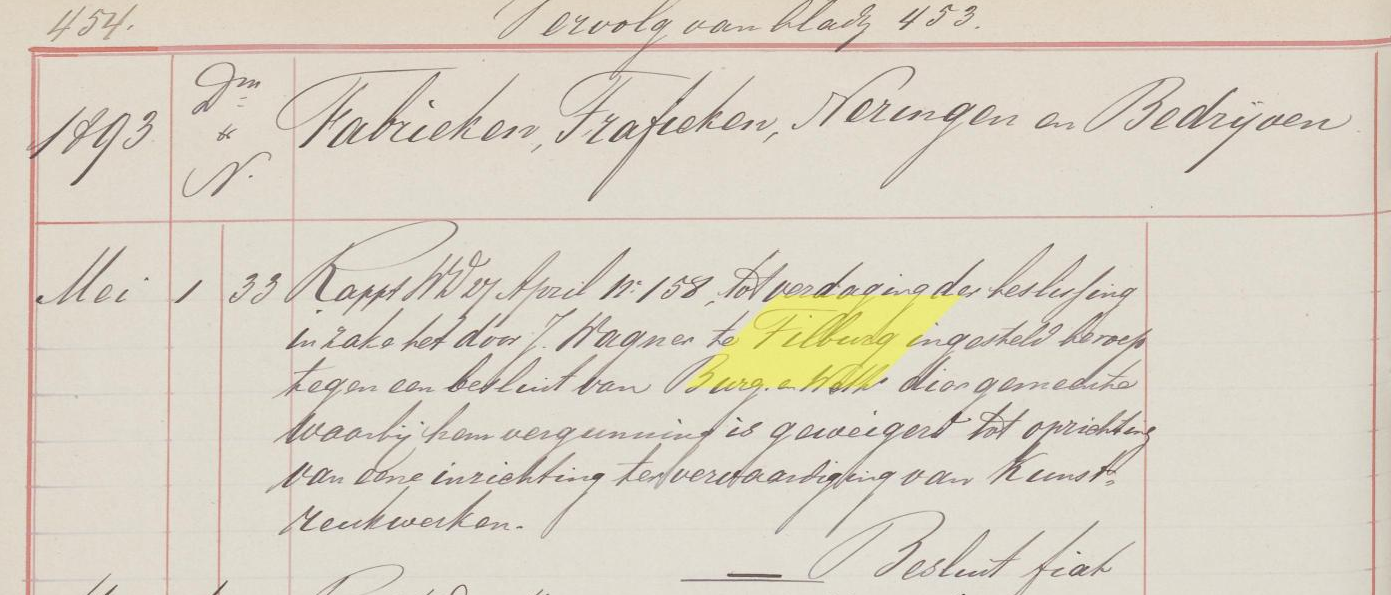 454. Vervolg van bladz 453.
1893 Dm & N. Fabrieken, Trafieken, Neringen en Bedrijven
Mei 1 33 Rappt WD 27 April No 158, tot verdaging der beslissing
inzake het door J. Wagner te Tilburg ingesteld beroep
tegen een besluit van Burg. en Weth dier gemeente
waarbij hem vergunning is geweigerd tot oprichting
van eene inrichting ter vervaardiging van Kunst-
reukwerken.
Besluit fiat